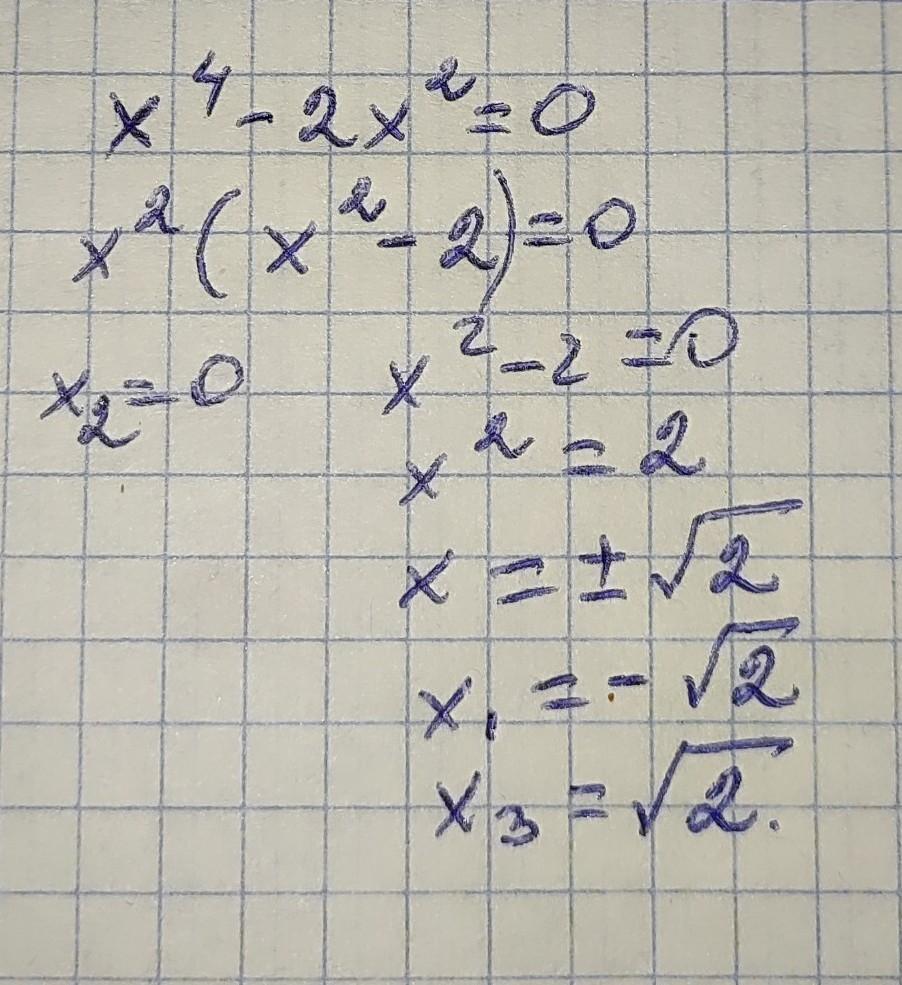 x⁴ - 2x² = 0
x² (x² - 2) = 0
x₂ = 0
x² - 2 = 0
x² = 2
x = ± √2
x₁ = - √2
x₃ = √2.